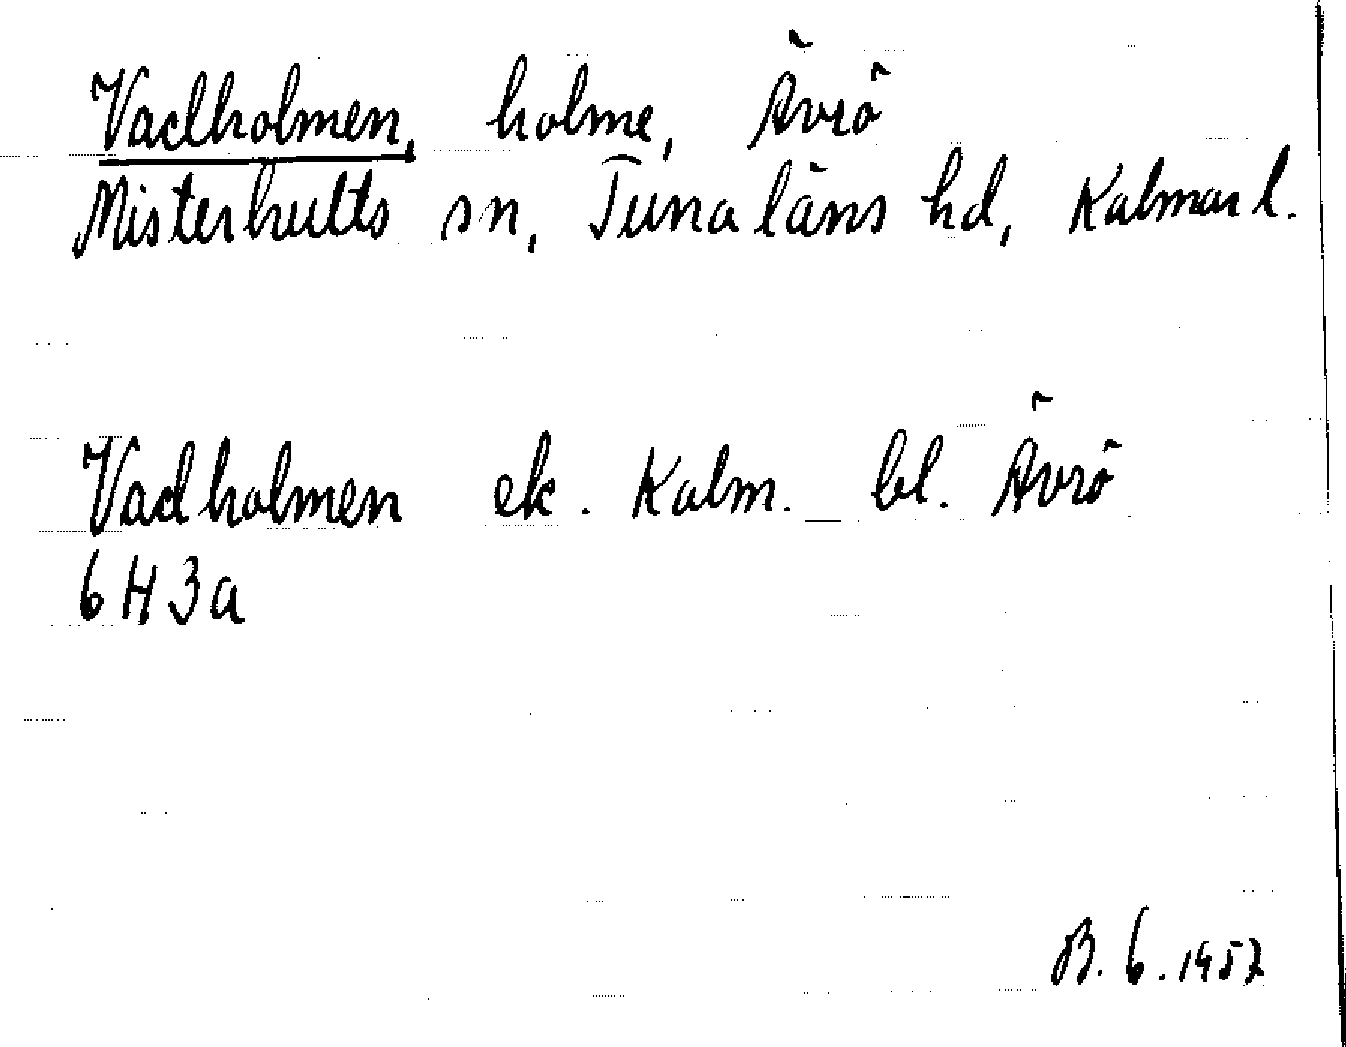 Vadholmen, holme, Ävrö
Misterhults sn, Tunaläns hd, Kalmar l.
Vadholmen ek. Kalm. bl. Ävrö
6H3a
B. 6. 1957